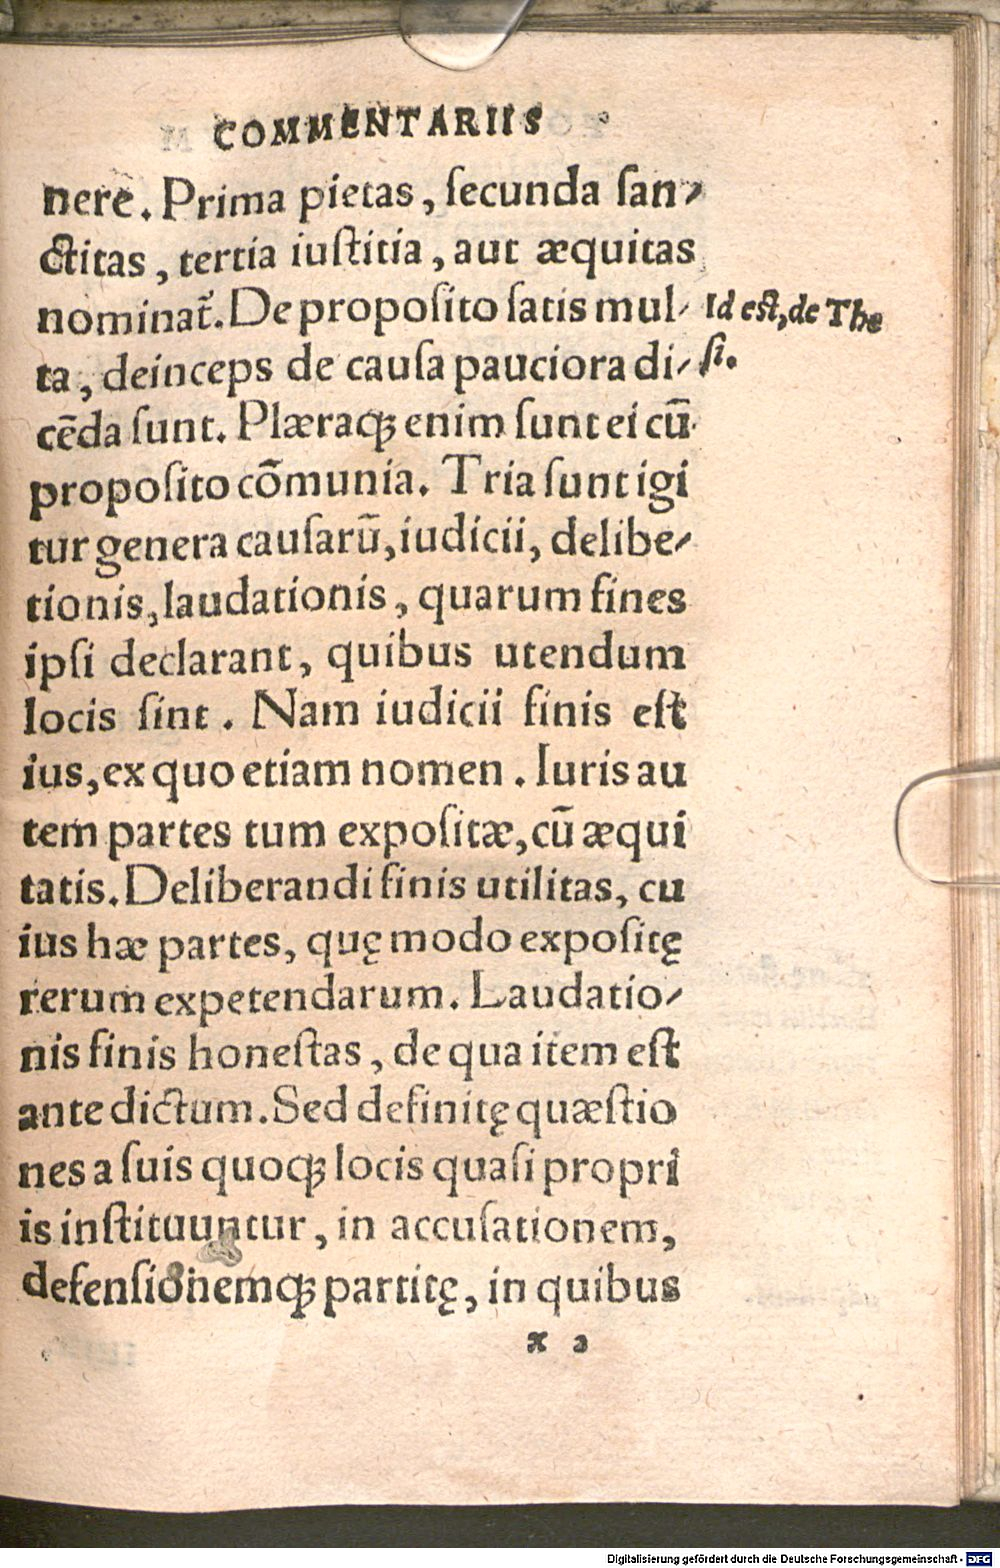 COMMENTARIIS
nere. Prima pietas, ſecunda ſan-
ctitas, tertia iuſtitia, aut æquitas
nominat̃. De propoſito ſatis mul-
ta, deinceps de cauſa pauciora di-
cēda ſunt. Plæraqꝫ enim ſunt ei cū
propoſito cōmunia. Tria ſunt igi
tur genera cauſarū, iudicii, delibe-
tionis, laudationis, quarum fines
ipſi declarant, quibus utendum
locis ſint. Nam iudicii finis eſt
ius, ex quo etiam nomen. Iuris au
tem partes tum expoſitæ, cū æqui
tatis. Deliberandi finis utilitas, cu
ius hæ partes, quę modo expoſitę
rerum expetendarum. Laudatio-
nis finis honeſtas, de qua item eſt
ante dictum. Sed definitę quæſtio
nes a ſuis quoqꝫ locis quaſi propri
is inſtituuntur, in accuſationem,
defenſionemqꝫ partitę, in quibus
x 2
Id eſt, de The
ſi.
Digitalisierung gefördert durch die Deutsche Forschungsgemeinschaft - DFG